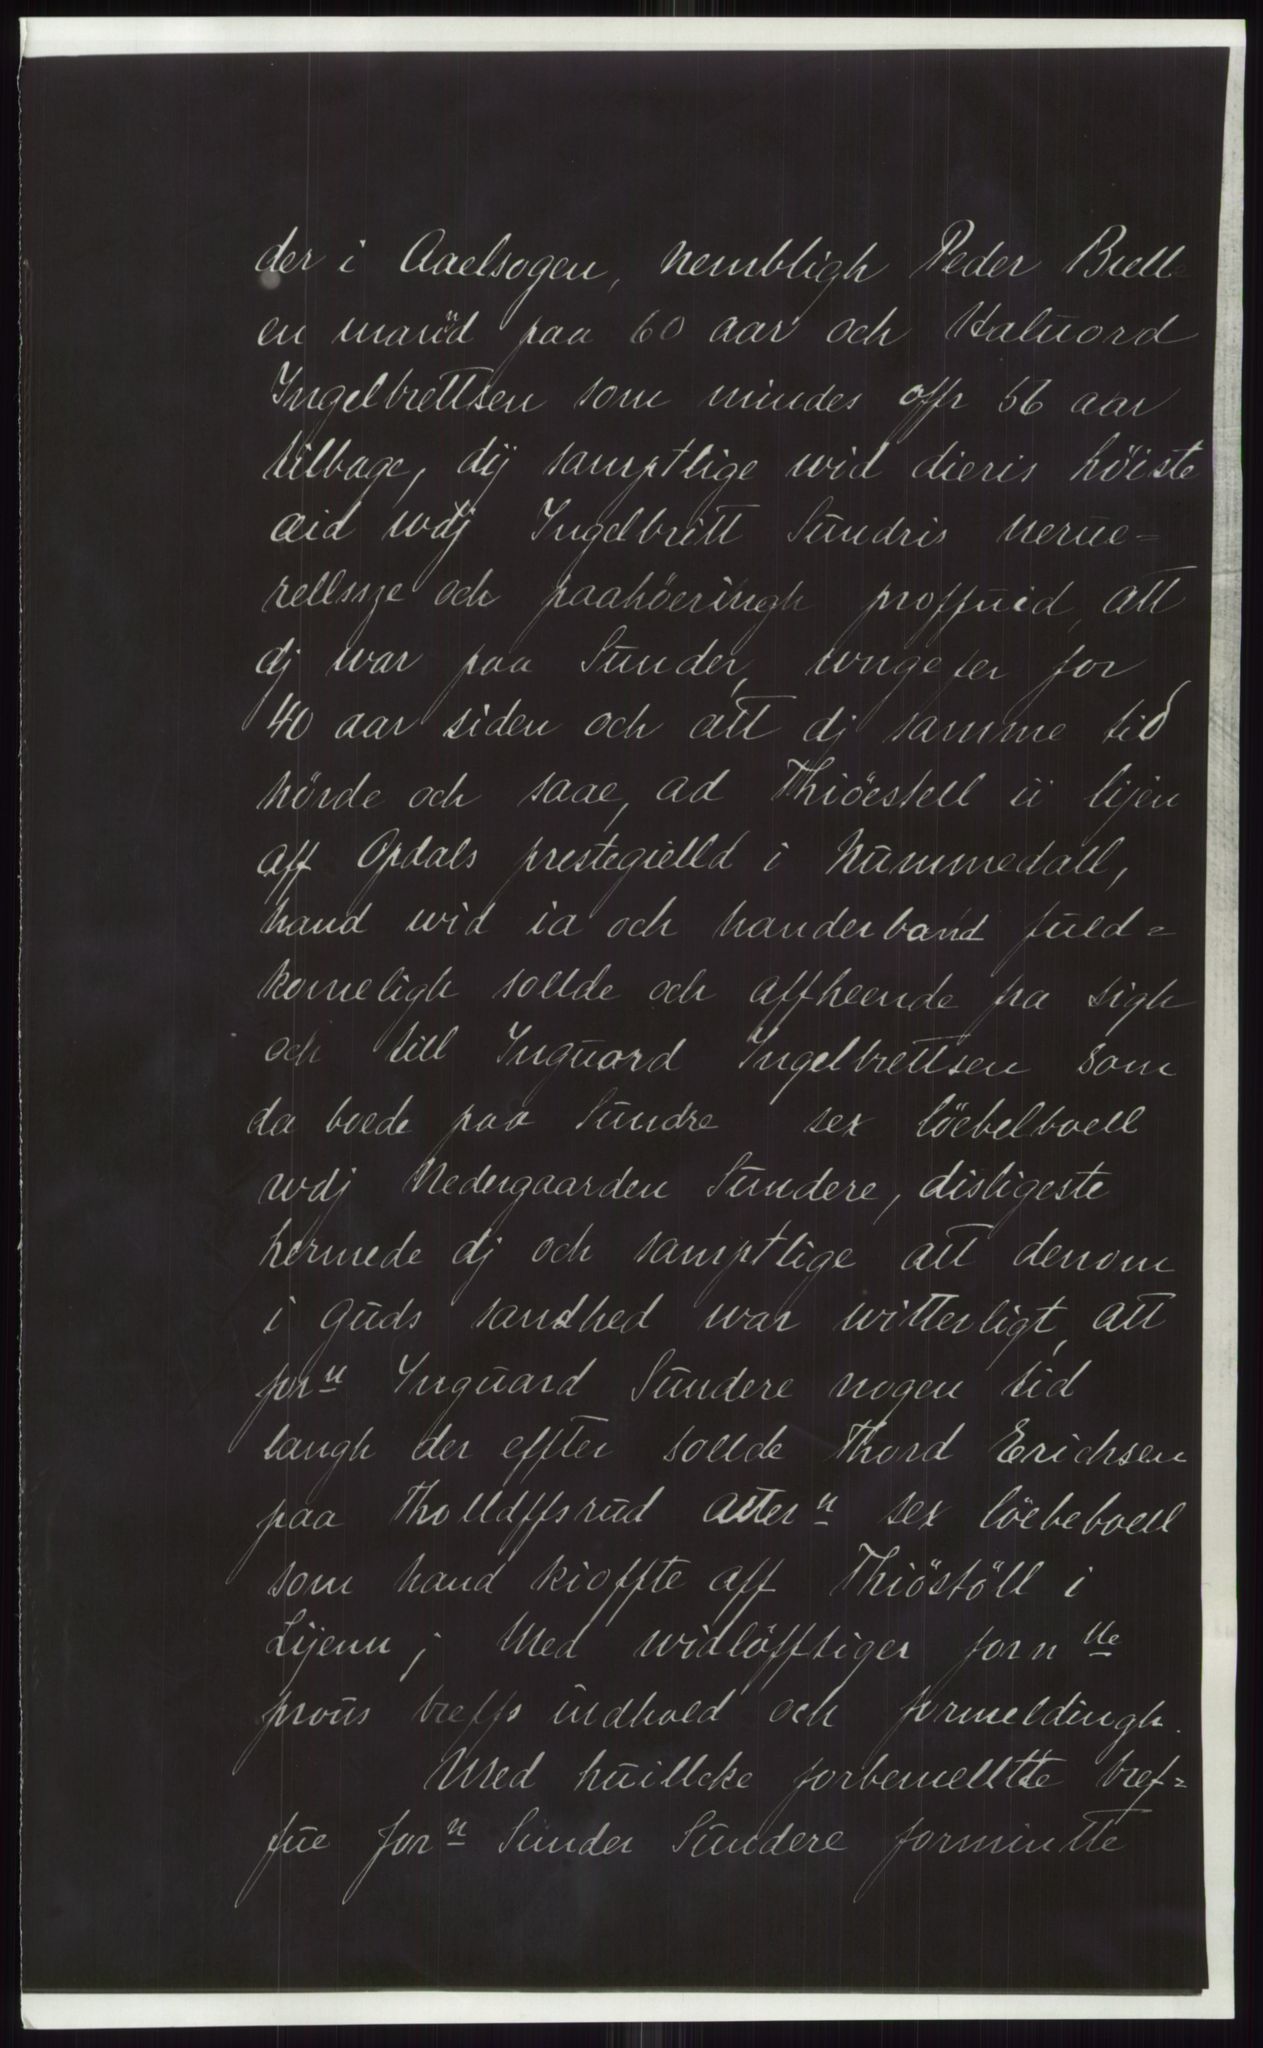 der i Aaelsogen, nembligh Peder Brelle
en mand paa 60 aar och Haluord
Ingelbrettsen som mindes offr 56 aar
tilbage, dij samptlige wid dieris höiste
æid wdj Ingelbritt Sundris nerue=
rellssze och paahöeringh proffuid, att
dj war paa Sunder, wngefer for
40 aar siden och att dj samme tid
hörde och saae, ad Thiöestell ii lijen
aff Opdals prestegielld i Nummedall,
hand wid ia och handerband fuld=
komeligh sollde och affheende fra sigh
och till Inguord Ingelbrettsen som
da boede paa Sundre sex löebelboell
wdj Nedergaarden Sundere, disligeste
hermede dj och samptlige att denom
i guds sandhed war witterligt, att
forn Inguard Sundere nogen tid
langh der effter sollde Thord Erichsen
paa Tholldffsrud atter sex löebeboell
som hand kioffte aff Thiöstöll i
Lijenn; Med widlöfftiger fornne
prous breffs indhold och formeldingh.
Med huillcke forbemellte bref=
fue forn Sunder Sundere formintte